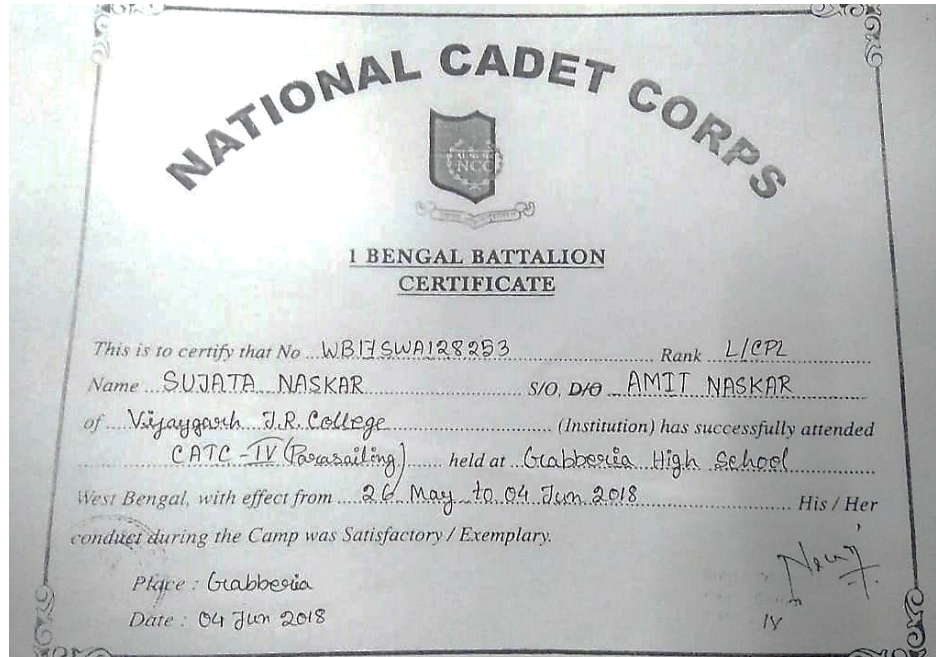 NATIONAL CADET CORPS
NCC
1 BENGAL BATTALION
CERTIFICATE
This is to certify that No WB17SWA128253 Rank L/CPL
Name SUJATA NASKAR S/O, D/O AMIT NASKAR
of Vijaygarh J.R. College (Institution) has successfully attended
CATC-IV (Parasailing) held at Grabberia High School
West Bengal, with effect from 26 May to 04 Jun 2018 His / Her
conduct during the Camp was Satisfactory / Exemplary.
Place : Grabberia
Date : 04 Jun 2018